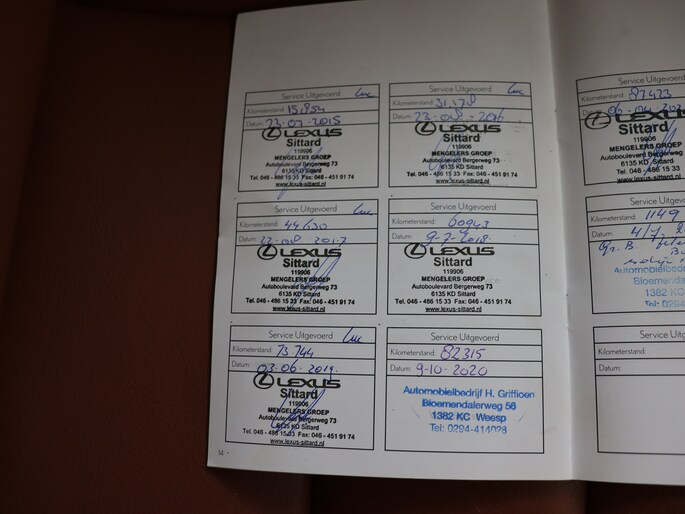 Service Uitgevoerd Luc
Kilometerstand: 15.854
Datum: 23-07-2015
LEXUS
Sittard
119906
MENGELERS GROEP
Autoboulevard Bergerweg 73
6135 KD Sittard
Tel. 046 - 486 15 33 Fax: 046 - 451 91 74
www.lexus-sittard.nl
Service Uitgevoerd Luc
Kilometerstand: 31.178
Datum: 23-08-2016
LEXUS
Sittard
119906
MENGELERS GROEP
Autoboulevard Bergerweg 73
6135 KD Sittard
Tel. 046 - 486 15 33 Fax: 046 - 451 91 74
www.lexus-sittard.nl
Service Uitgevoerd Luc
Kilometerstand: 44630
Datum: 22-08 2017
LEXUS
Sittard
119906
MENGELERS GROEP
Autoboulevard Bergerweg 73
6135 KD Sittard
Tel. 046 - 486 15 33 Fax: 046 - 451 91 74
www.lexus-sittard.nl
Service Uitgevoerd
Kilometerstand: 60943
Datum: 9-7-2018
LEXUS
Sittard
119906
MENGELERS GROEP
Autoboulevard Bergerweg 73
6135 KD Sittard
Tel. 046 - 486 15 33 Fax: 046 - 451 91 74
www.lexus-sittard.nl
Service Uitgevoerd Luc
Kilometerstand: 73.744
Datum: 03-06-2019
LEXUS
Sittard
119906
MENGELERS GROEP
Autoboulevard Bergerweg 73
6135 KD Sittard
Tel. 046 - 486 15 33 Fax: 046 - 451 91 74
www.lexus-sittard.nl
Service Uitgevoerd
Kilometerstand: 82315
Datum: 9-10-2020
Automobielbedrijf H. Griffioen
Bloemendalerweg 56
1382 KC Weesp
Tel: 0294-414028
14
Service Uitgevoerd
Kilometerstand: 87423
Datum: 06-04
LEXUS
Sittard
119906
MENGELERS GROEP
Autoboulevard Bergerweg 73
6135 KD Sittard
Tel. 046 - 486 15 33 Fax: 046 - 451
www.lexus-sittard.nl
Service Uitgevoe
Kilometerstand: 1149
Datum:
Automobielbedrijf
Bloemend
1382 KC
Tel: 0294
Service Uitg
Kilometerstand:
Datum: